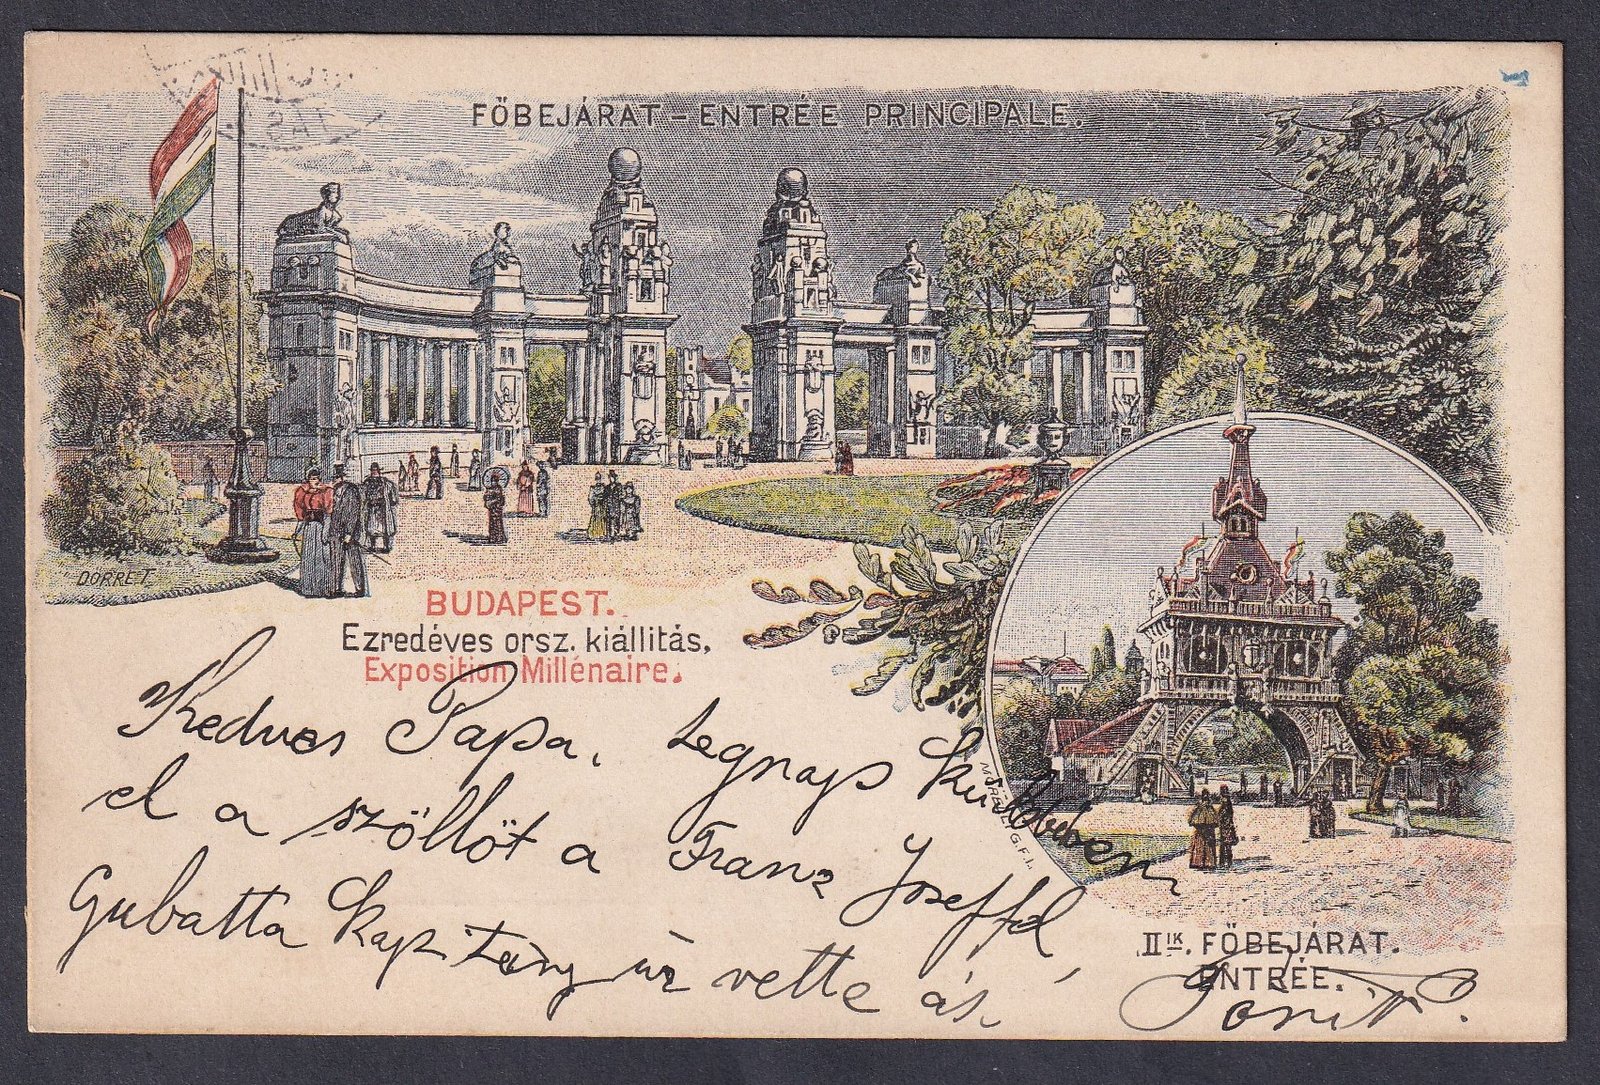 FŐBEJÁRAT – ENTRÉE PRINCIPALE.
DÖRRE T.
BUDAPEST.
Ezredéves orsz. kiállitás,
Exposition Millénaire.
MORELLI G.F.I.
IIIK. FŐBEJÁRAT.
ENTRÉE.
Kedves Papa, tegnap küldtem
el a szöllőt a Franz Joseffel,
Gubatta kapitány úr vette át.